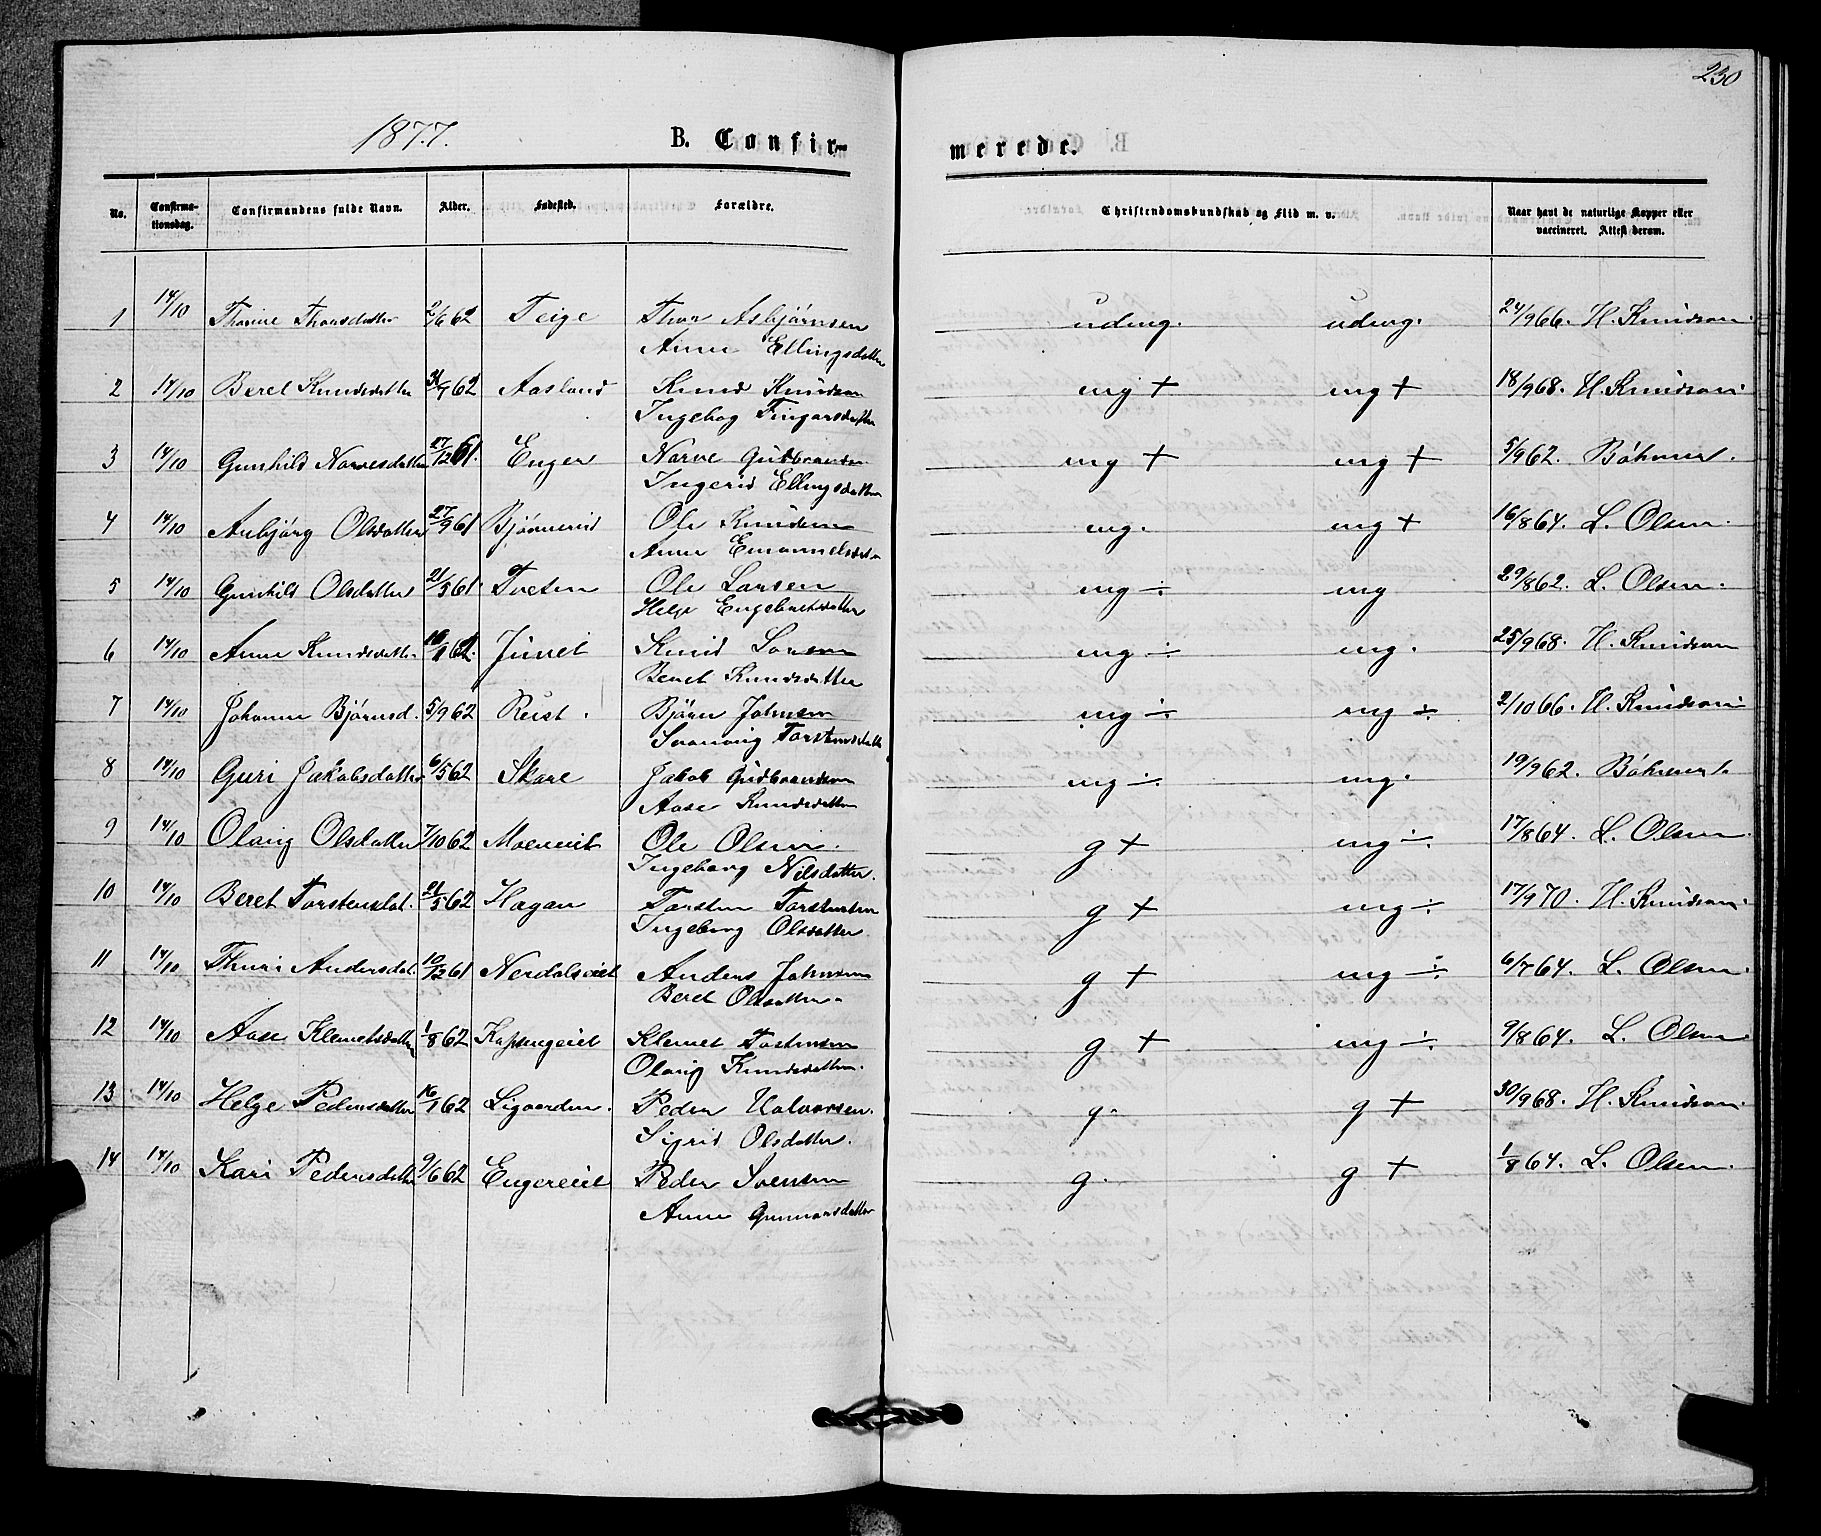 230
1877.
B. Confir-
merede.
No.
Confirma-
tionsdag.
Confirmandens fulde Navn.
Alder.
Fødested.
Forældre.
Christendomskundskab og Flid m. v.
Naar havt de naturlige Kopper eller
vaccineret. Attest derom.
1 14/10 Thorine Thorsdatter 2/6 62 Teige Thor Asbjørnsen udmg. udmg. 24/9 66. H. Knudson.
Anne Ellingsdatter
2 14/10 Beret Knudsdatter 62 Aasland Knud Knudson mg + mg + 18/9 68. H. Knudson
Ingebog
3 14/10 Gunhild Narvesdatter 27/12 61. Enger Narve Gudbrandsen mg + mg + 5/9 62. Bøhmer.
Ingerid Ellingsdatter
4 14/10 Anbjørg Olsdatter 27/9 61 Ole Knudsen mg. mg + 16/8 64. L. Olsen.
Anne Emanuelsdatter
5 14/10 Gunhild Olsdatter 21/5 61. Tveten Ole Larsen mg ÷ mg 29/8 62. L. Olsen.
Helge Engebretsdatter
6 14/10 Anne Knudsdatter Juvet Knud Larsen mg ÷ mg. 25/9 68. H. Knudson
Beret Knudsdatter
7 14/10 Johanne Bjørnsd. 5/9 62 Rust. Bjørn Johnsen mg ÷ mg ÷ 2/10 66. H. Knudson
Svanaug Torstensdatter
8 14/10 Guri Jakobsdatter 6/5 62 Skare Jakob Gudbrandsen mg ÷ mg. 19/9 62. Bøhmer.
Aase Knudsdatter
9 14/10 Olaug Olsdatter 7/10 62 Moeneiet Ole Olsen. g + mg ÷. 17/8 64. L. Olsen.
Ingeborg Nilsdatter.
10 14/10 Beret Torstensdat. 21/5 62 Hagan Torsten Torstensen g + mg ÷. 17/9 70. H. Knudson
Ingeborg Olsdatter.
11 14/10 Thuri Andersdat. 10/12 61 Nerdalseiet Anders Johnsen g + mg ÷. 6/7 64. L. Olsen.
Beret Olsdatter.
12 14/10 Aase Klemetsdatter 1/8 62 Klemet Torstensen g + mg ÷. 9/8 64. L. Olsen
Olaug Knudsdatter.
13 14/10 Helge Pedersdatter 16/1 62 Ligaarden. Peder Halvorsen. g. g + 30/9 68. H. Knudson.
Sigrid Olsdatter.
14 14/10 Kari Pedersdatter 9/6 62 Engereiet Peder Svensen g. g + 1/8 64. L. Olsen.
Anne Gunnarsdatter